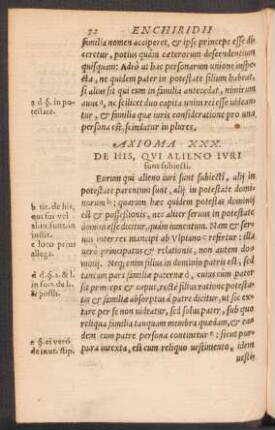 32 ENCHIRIDII
familia nomen acciperet, & ipse princeps esse di
ceretur, potius quàm cæterorum descendentium
quisquam: Adeò ut hac personarum unione inspe
cta, ne quidem pater in potestate filium habeat,
si alius sit qui eum in familia antecedat, nimirum
auus a, ne scilicet duo capita unius rei esse uidean
tur, & familia quæ iuris consideratione pro una
persona est, scindatur in plures.
a d.§. in po-
testate.
AXIOMA XXX.
DE HIS, QVI ALIENO IVRI
sunt subiecti.
Eorum qui alieno iuri sunt subiecti, alij in
potestate parentum sunt, alij in potestate domi
norum b: quarum hæc quidem potestas dominij
est & possessionis, nec aliter serui in potestate
domini esse dicuntur, quàm iumentum. Nam &
seruus inter res mancipi ab Vlpiano c refertur: illa
uerò principatus & relationis, non autem do-
minij. Neq; enim filius in dominio patris est, sed
tanquam pars familiæ paternæ d, cuius cùm pater
sit princeps & caput, rectè filius ratione potesta
tis & familiæ absorptus à patre dicitur, ut sic ex
tare per se non uideatur, sed solus pater, sub quo
reliqua familia tanquam membra quædam, & ea-
dem cum patre persona continetur e: sicut pur-
pura intexta, est cum reliquo uestimento, idem
uestis
b tit. de his,
qui sui vel
alien. sunt. in
instit.
c loco prius
allega.
d d.§.1. & l.
in suis de li.
& posth.
e §. ei verò
de inuti. stip.